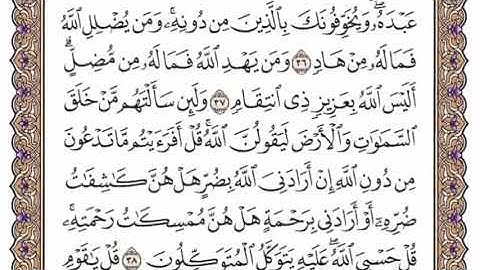 عَبْدَهُۥۖ وَيُخَوِّفُونَكَ بِٱلَّذِينَ مِن دُونِهِۦۚ وَمَن يُضْلِلِ ٱللَّهُ
فَمَا لَهُۥ مِنْ هَادٍ ٣٦ وَمَن يَهْدِ ٱللَّهُ فَمَا لَهُۥ مِن مُّضِلٍّۗ
أَلَيْسَ ٱللَّهُ بِعَزِيزٍ ذِى ٱنتِقَامٍ ٣٧ وَلَئِن سَأَلْتَهُم مَّنْ خَلَقَ
ٱلسَّمَٰوَٰتِ وَٱلْأَرْضَ لَيَقُولُنَّ ٱللَّهُۚ قُلْ أَفَرَءَيْتُم مَّا تَدْعُونَ
مِن دُونِ ٱللَّهِ إِنْ أَرَادَنِىَ ٱللَّهُ بِضُرٍّ هَلْ هُنَّ كَٰشِفَٰتُ
ضُرِّهِۦٓ أَوْ أَرَادَنِى بِرَحْمَةٍ هَلْ هُنَّ مُمْسِكَٰتُ رَحْمَتِهِۦۚ
قُلْ حَسْبِىَ ٱللَّهُۖ عَلَيْهِ يَتَوَكَّلُ ٱلْمُتَوَكِّلُونَ ٣٨ قُلْ يَٰقَوْمِ